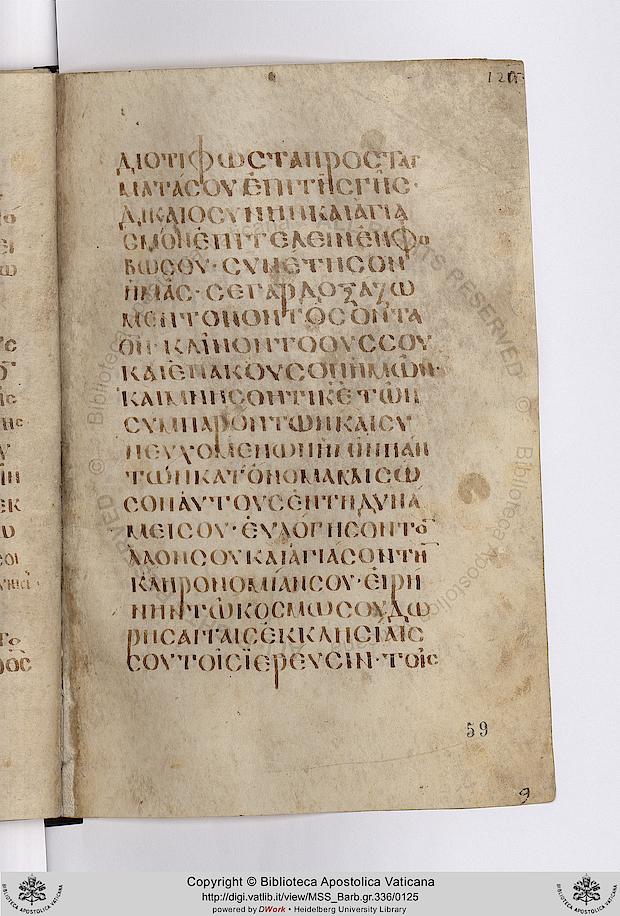 ΔΙΟΤΙΦΩϹΤΑΠΡΟϹΤΑΓ
ΜΑΤΑϹΟΥΕΠΙΤΗϹΓΗϹ·
ΔΙΚΑΙΟϹΥΝΗΝΚΑΙΑΓΙΑ
ϹΜΟΝΕΠΙΤΕΛΕΙΝΕΝΦΟ
ΒΩϹΟΥ·ϹΥΝΕΤΗϹΟΝ
ΗΜΑϹ·ϹΕΓΑΡΔΟΞΑΖΩ
ΜΕΝΤΟΝΟΝΤΟϹΟΝΤΑ
ΘΝ·ΚΛΙΝΟΝΤΟΟΥϹϹΟΥ
ΚΑΙΕΠΑΚΟΥϹΟΝΗΜΩΝ·
ΚΑΙΜΝΗϹΘΗΤΙΚΕΤΩΝ
ϹΥΜΠΑΡΟΝΤΩΝΚΑΙϹΥ
ΝΕΥΧΟΜΕΝΩΝΗΜΙΝΠΑΝ
ΤΩΝΚΑΤΟΝΟΜΑΚΑΙϹΩ
ϹΟΝΑΥΤΟΥϹΕΝΤΗΔΥΝΑ
ΜΕΙϹΟΥ·ΕΥΛΟΓΗϹΟΝΤΟ̅
ΛΑΟΝϹΟΥΚΑΙΑΓΙΑϹΟΝΤΗ̅
ΚΛΗΡΟΝΟΜΙΑΝϹΟΥ·ΕΙΡΗ
ΝΗΝΤΩΚΟϹΜΩϹΟΥΔΩ
ΡΗϹΑΙΤΑΙϹΕΚΚΛΗϹΙΑΙϹ
ϹΟΥΤΟΙϹΪΕΡΕΥϹΙΝ·ΤΟΙϹ
59
9
Copyright © Biblioteca Apostolica Vaticana
http://digi.vatlib.it/view/MSS_Barb.gr.336/0125
powered by DWork • Heidelberg University Library